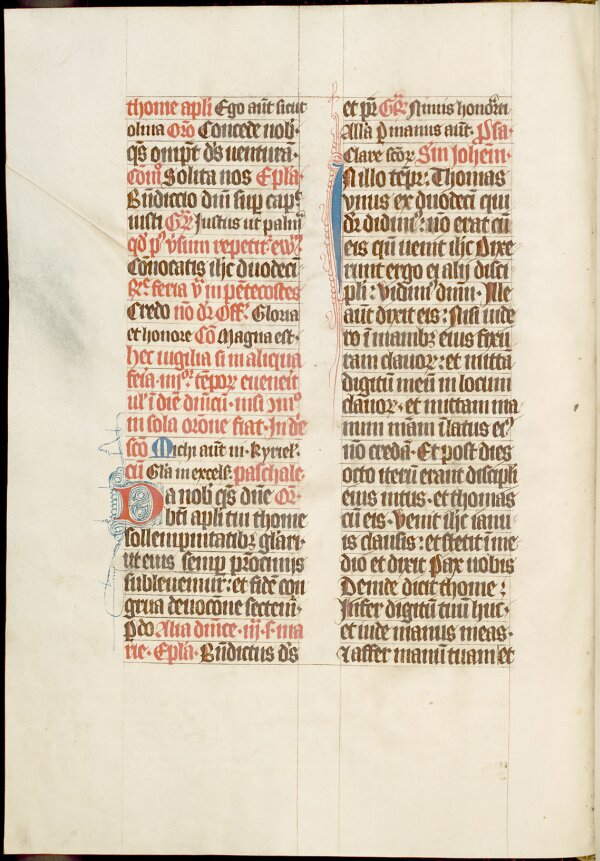 thome apli Ego aut sicut
oliua Oro Concede nob·
qs ompt ds uentura·
Com Solita nos Epla·
Bndictio dni sup cap
iusti Gr Justus ut palm
qd p vsum repetit ew
Conuocatis ihc duodeci
R feria v in pentecostes
Credo no dr Off· Gloria
et honore Co Magna est·
hec uigilia si in aliqua
feria iiii or tempor euenerit
ul i die dnicu· nisi
in sola orone fiat· In die
sco Michi aut in· Kyriel·
cu Gla in excels· paschale·
Da nob qs dne Or·
bti apli tui thome
sollempnitatibz glari·
ut eius semp prociniis
subleuemur: et fide con
grua deuocone sectem·
p do Alia dnice· iii· s· ma
rie· Epla· Bndictus ds
et pr Gr Nimis honorati
Alla p manus aut· Psa·
Clare scor Sm Johem·
In illo tepr: Thomas
ynus ex duodeci qui
dr didim: no erat cu
eis qn uenit ihc Dixe
runt ergo ei alij disci
pli: vidim dnm· Ille
aut dixit eis: Nisi uide
ro i manibz eius fixu
ram clauor: et mitta
digitu meu in locum
clauor· et mittam ma
num mam i latus ei
no creda· Et post dies
octo iteru erant discipli
eius intus· et thomas
cu eis· Venit ihc ianu
is clausis: et stetit i me
dio et dixit Pax uobis
Deinde dicit thome:
Infer digitu tuu huc·
et uide manus meas·
& affer manu tuam et